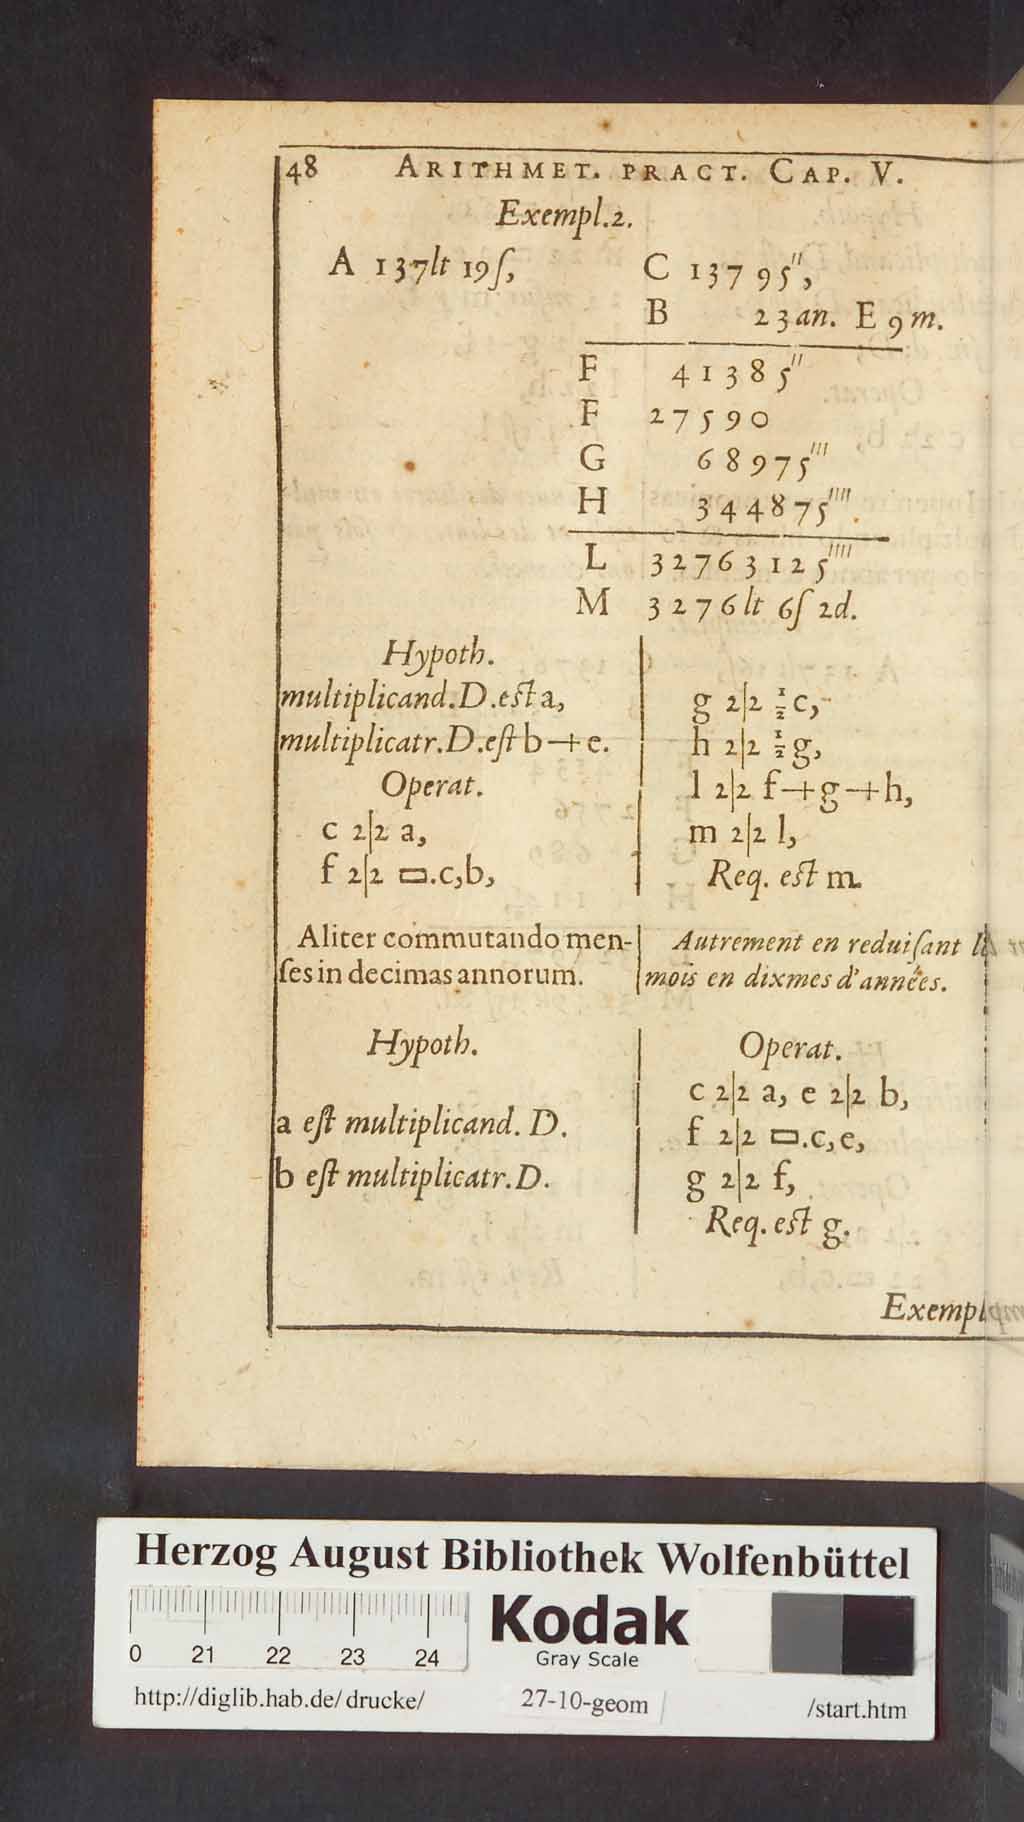 48 ARITHMET. PRACT. CAP. V.
Exempl.2.
A 137lt 19ſ, C 13795'',
B 23an. E 9m.
F 41385''
F 27590
G 68975'''
H 344875''''.
L 32763125''''
M 3276lt 6ſ 2d.
Hypoth.
multiplicand.D.est a,
multiplicatr.D.eſt b+e.
Operat.
c 2|2 a,
f 2|2 ▭.c,b,
g 2|2 ½c,
h 2|2 ½g,
l 2|2 f+g+h,
m 2|2 l,
Req. est m.
Aliter commutando men-
ſes in decimas annorum.
Autrement en reduiſant
mois en dixmes d'années.
Hypoth.
a eſt multiplicand. D.
b eſt multiplicatr.D.
Operat.
c 2|2 a, e 2|2 b,
f 2|2 ▭.c,e,
g 2|2 f,
Req. est g.
Exempl
Herzog August Bibliothek Wolfenbüttel
0 21 22 23 24
Kodak
Gray Scale
http://diglib.hab.de/drucke/ 27-10-geom /start.htm